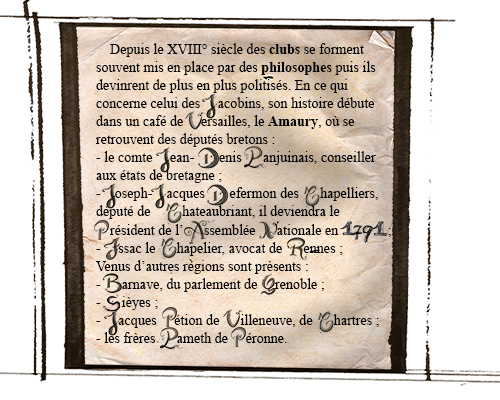 Depuis le XVIII° siècle des clubs se forment
souvent mis en place par des philosophes puis ils
devinrent de plus en plus politisés. En ce qui
concerne celui des Jacobins, son histoire débute
dans un café de Versailles, le Amaury, où se
retrouvent des députés bretons :
- le comte Jean- Denis Lanjuinais, conseiller
aux états de bretagne ;
- Joseph-Jacques Defermon des Chapelliers,
député de Chateaubriant, il deviendra le
Président de l'Assemblée Nationale en 1791 ;
- Issac le Chapelier, avocat de Rennes ;
Venus d'autres règions sont prèsents :
- Barnave, du parlement de Grenoble ;
- Sièyes ;
- Jacques Pétion de Villeneuve, de Chartres ;
- les frères Lameth de Péronne.